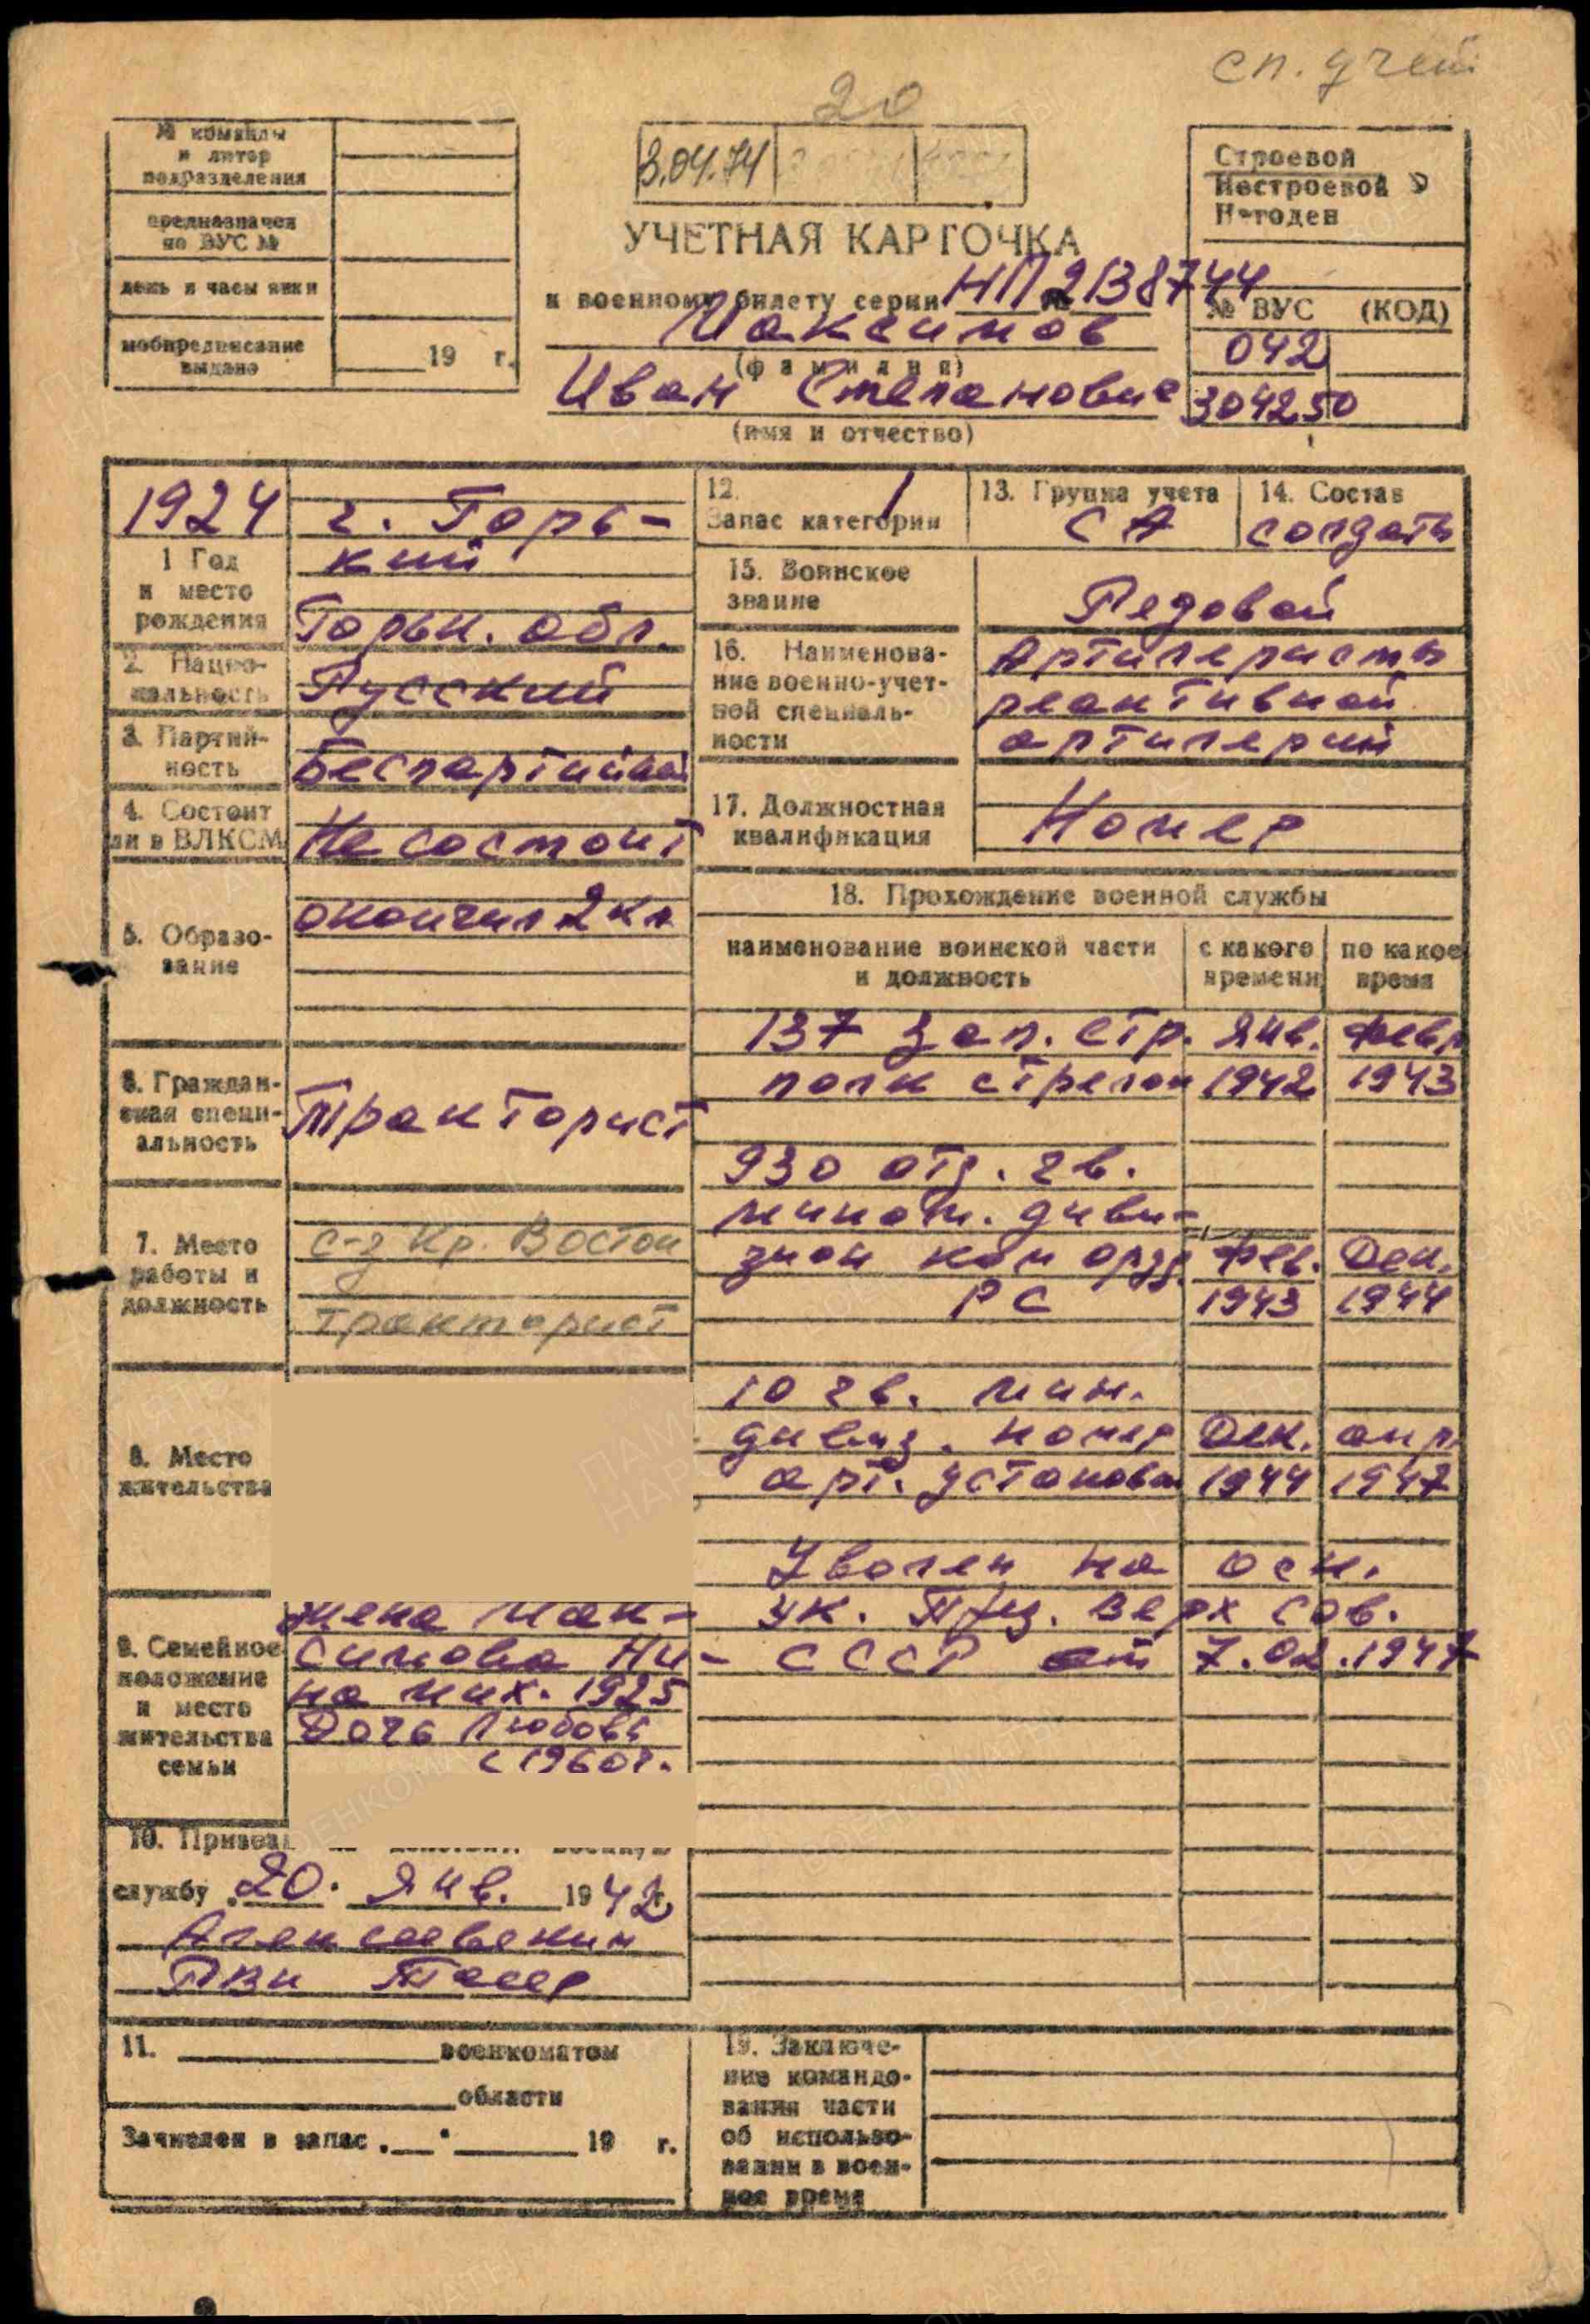 сп. учет
20
№ команды
и литер
подразделения
предназначен
по ВУС №
день и часы явки
мобпредписание
выдано
19 г.
3.04.74
Строевой
Нестроевой
Негоден
УЧЕТНАЯ КАРТОЧКА
к военному билету серии НП № 2138744
Максимов
(фамилия)
Иван Степанович
(имя и отчество)
№ ВУС (КОД)
042
304250
1924
1 Год
и место
рождения
г. Горь-
кий
Горьк. обл.
2. Нацио-
нальность
Русский
3. Партий-
ность
Беспартийный
4. Состоит
ли в ВЛКСМ
Не состоит
5. Образо-
вание
окончил 2 кл
6. Граждан-
ская специ-
альность
Тракторист
7. Место
работы и
должность
с-з Кр. Восток
тракторист
8. Место
жительства
9. Семейное
положение
и место
жительства
семьи
жена Мак-
симова Ни-
на Мих. 1925
Дочь Любовь
с 1960г.
10. Призван
службу 20. Янв. 1942г.
Алексеевским
РВК
11. военкоматом
области
Зачислен в запас . . 19 г.
12. 1
Запас категории
13. Группа учета
СА
14. Состав
солдаты
15. Воинское
звание
Рядовой
16. Наименова-
ние военно-учет-
ной специаль-
ности
Артилеристы
реактивной
артилерии
17. Должностная
квалификация
Номер
18. Прохождение военной службы
наименование воинской части
и должность
с какого
времени
по какое
время
137 зап. стр. Янв. февр
полк стрелок 1942 1943
930 отд. гв.
мином. диви-
зион ком оруд. Фев. Дек.
РС 1943 1944
10 гв. мин.
дивиз. номер Дек. апр.
арт. установки 1944 1947
Уволен на осн.
ук. През. Верх Сов.
СССР от 7.02.1947
19. Заключе-
ние командо-
вания части
об использо-
вании в воен-
ное время